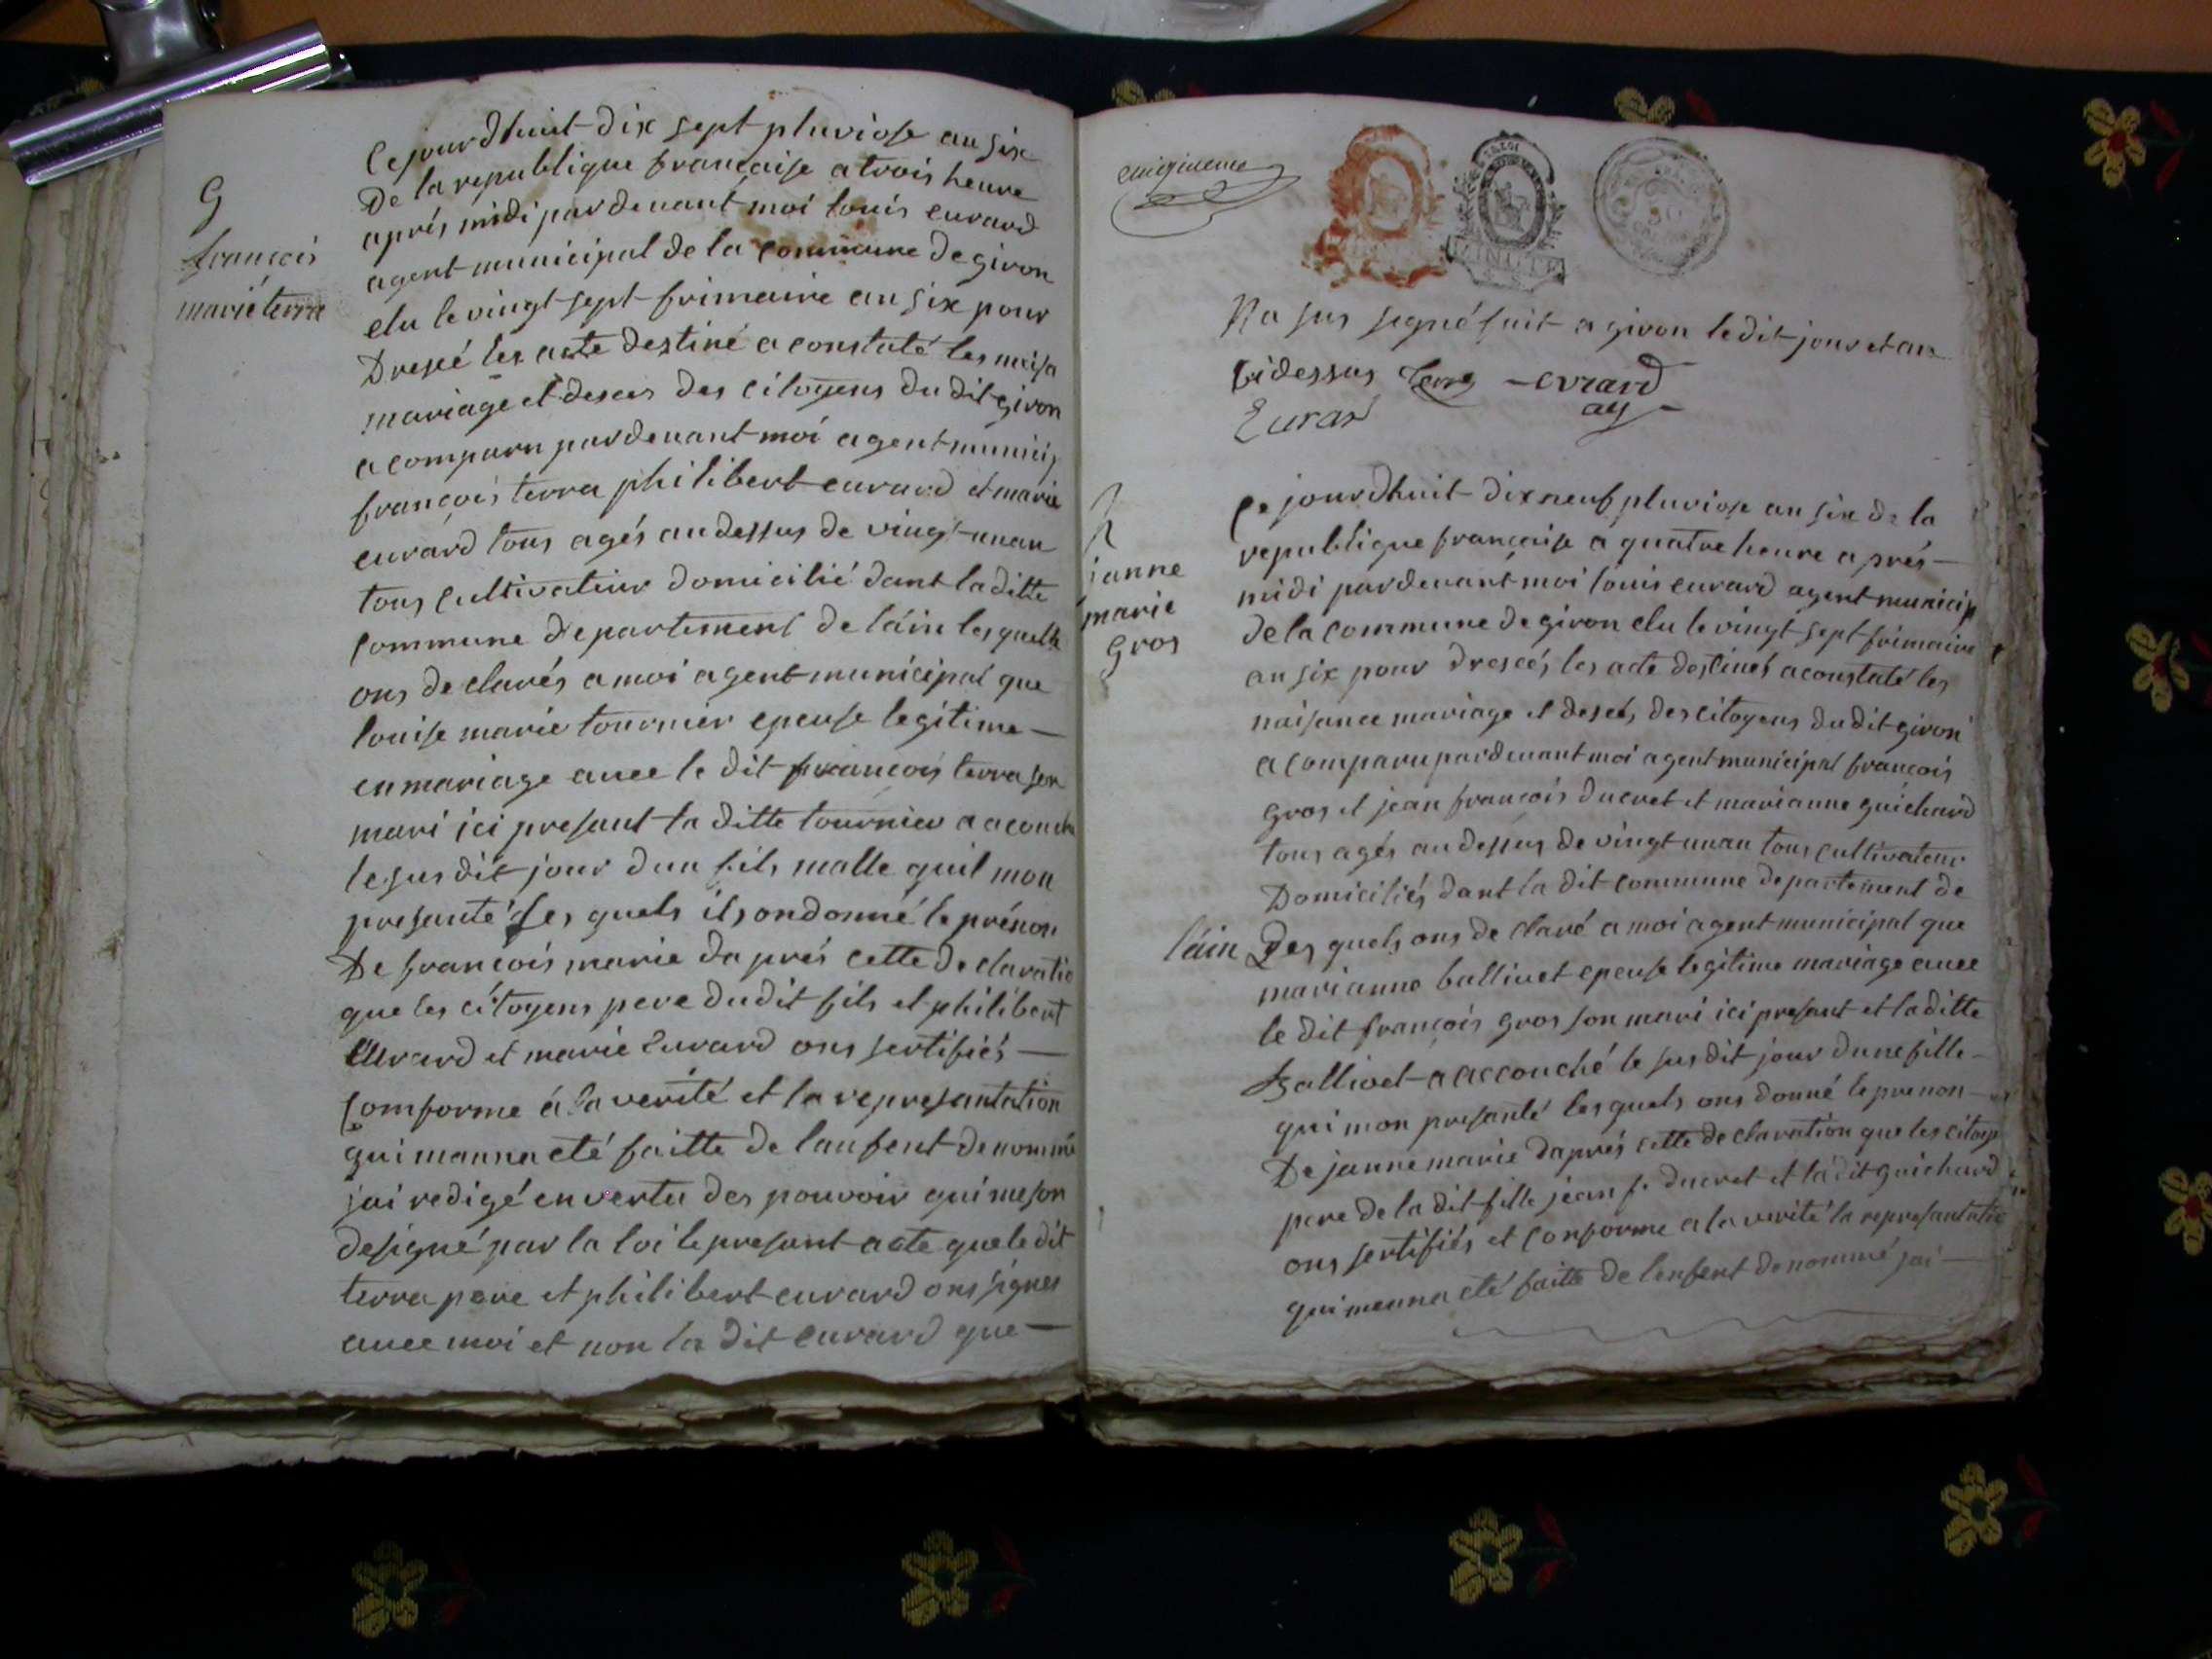 G
francois
marie terra
Cejourdhuit dix sept pluviose an six
De la republique francaise a trois heure
aprés midi pardevant moi louis evrard
agent municipal de la commune de giron
elu le vingt sept frimaire an six pour
Dressé les acte destiné a constaté les naisa
mariage et deses des citoyens du dit giron
a comparu pardevant moi agent municip
francois terra philibert evrard et marie
evrard tous agés au dessus de vingt un an
tous cultivateur domicilié dant la ditte
commune departement de láin les quells
ons declarés a moi agent municipal que
louise marie tournier epeuse legitime
en mariage avec le dit francois terra son
mari ici presant la ditte tournier a acouche
le sus dit jour dun fils malle quil mon
presanté les quels ils on donné le prénon
De francois marie da prés cette declaratio
que les citoyens pere dudit fils et philibert
Evrard et marie Evrard ons sertifiés
comforme á la verité et la represantation
qui manna eté faitte de lanfent denommé
jai redigé en vertu des pouvoir qui me son
designé par la loi le presant acte que le dit
terra pere et philibert evrard ons signes
avec moi et non la dit evrard que
MINUTE
Na sus signé fait a giron le dit jour et an
cidessus terra evrard
Evrar ag
h
janne
marie
gros
Ce jourdhuit dix neuf pluviose an six de la
republique francaise a quatre heure a prés
midi pardevant moi louis evrard agent municip
de la commune de giron elu le vingt sept frimaire
an six pour dressés les acte destinés a constaté les
naisance mariage et desés des citoyens du dit giron
a comparu pardevant moi agent municipal francois
gros et jean francois ducret et marianne guichard
tous agés au dessus de vingt un an tous cultivateur
Domiciliés dant la dit commune departement de
láin Les quels ons declaré a moi agent municipal que
marianne ballivet epeuse legitime mariage avec
le dit francois gros son mari ici presant et la ditte
Ballivet a accouché le sus dit jour dune fille
qui mon presanté les quels ons donné le prenon
De janne marie daprés cette declaration que les citoy
pere de la dit fille jean f. ducret et la dit guichard
ons sertifiés et conforme a la verité la represantatio
qui manna eté faitte de lenfent denommé jai